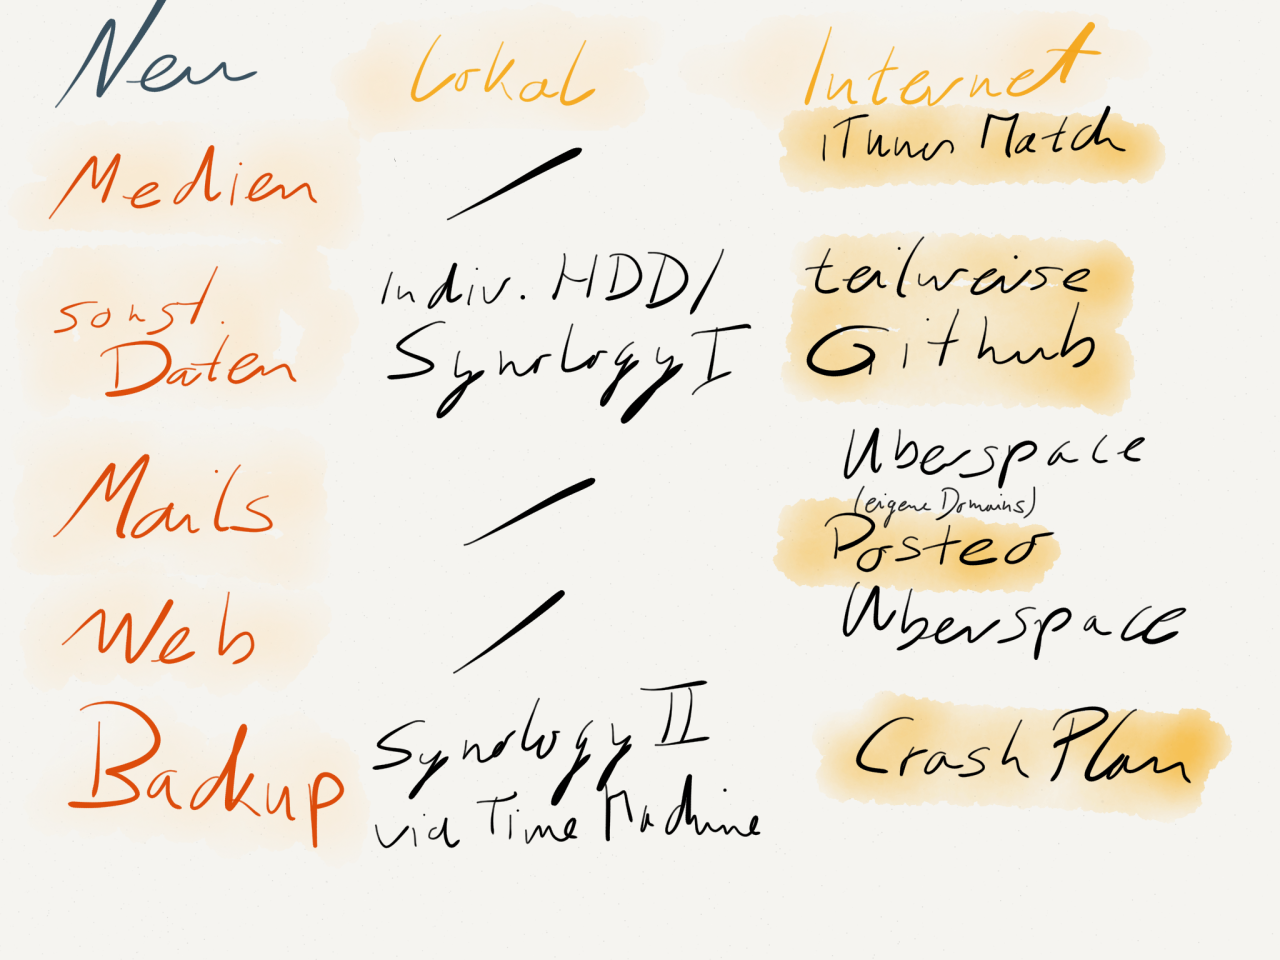 Neu Lokal Internet
Medien / iTunes Match
sonst. Indiv. HDD/ teilweise
Daten Synology I Github
Mails / Uberspace
(eigene Domains)
Posteo
Web / Uberspace
Backup Synology II CrashPlan
via Time Machine